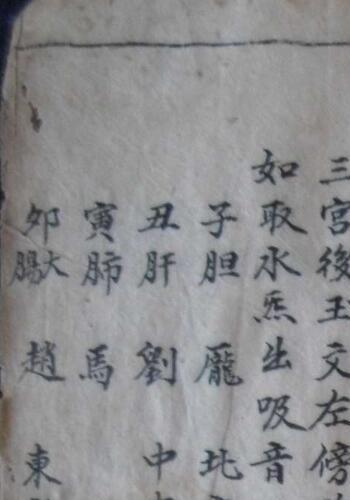 三宮後玉文左傍
如取水炁出吸音
子胆龐北
丑肝劉中
寅肺馬
卯大腸趙東